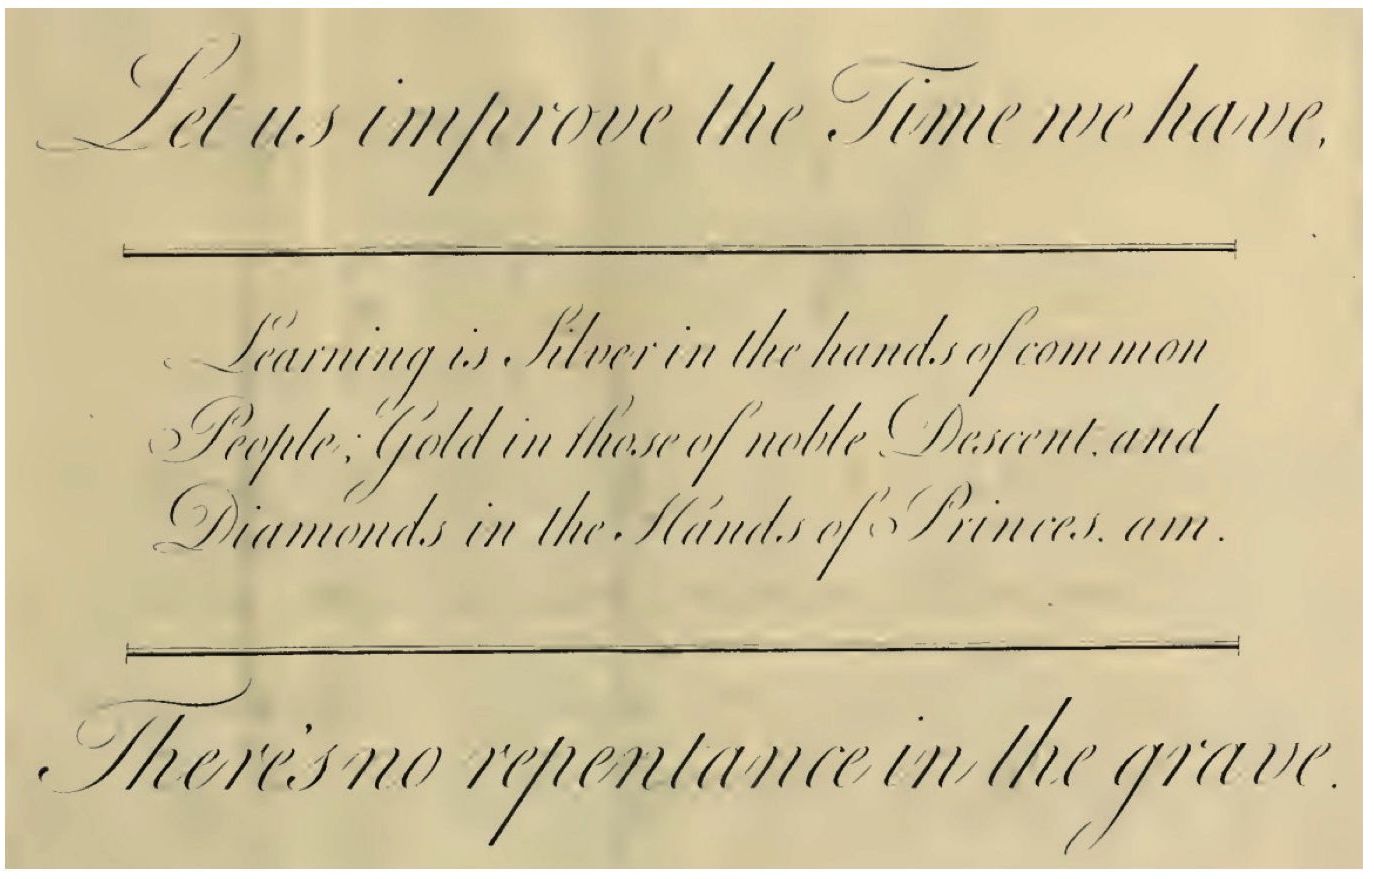 Let us improve the Time we have,
Learning is Silver in the hands of common
People; Gold in those of noble Descent, and
Diamonds in the Hands of Princes. am.
There's no repentance in the grave.